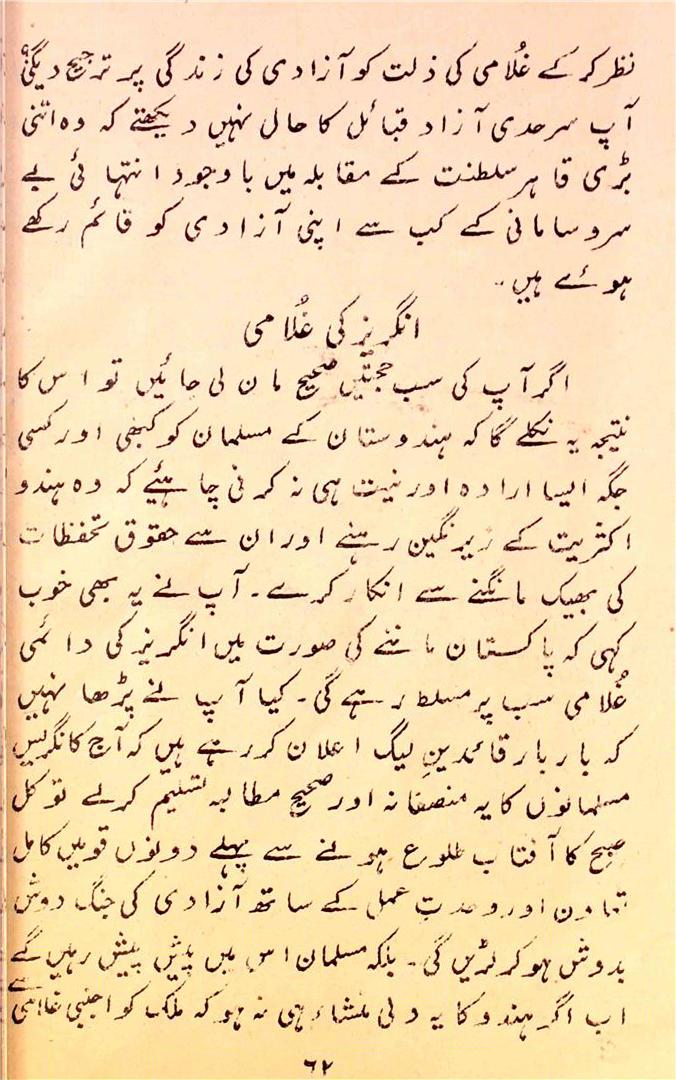 نظر کر کے غُلامی کی ذلت کو آزادی کی زندگی پر ترجیح دیگی؟
آپ سرحدی آزاد قبائل کا حال نہیں دیکھتے کہ وہ اتنی
بڑی قاہر سلطنت کے مقابلہ میں باوجود انتہائی بے
سروسامانی کے کب سے اپنی آزادی کو قائم رکھے
ہوئے ہیں۔
انگریز کی غُلامی
اگر آپ کی سب حجتیں صحیح مان لی جائیں تو اس کا
نتیجہ یہ نکلے گا کہ ہندوستان کے مسلمان کو کبھی اور کسی
جگہ ایسا ارادہ اور نیت ہی نہ کرنی چاہئیے کہ وہ ہندو
اکثریت کے زیر نگین رہنے اور ان سے حقوق تحفظات
کی بھیک مانگنے سے انکار کرے۔ آپ نے یہ بھی خوب
کہی کہ پاکستان ماننے کی صورت میں انگریز کی دائمی
غُلامی سب پر مسلط رہے گی۔ کیا آپ نے پڑھا نہیں
کہ بار بار قائدینِ لیگ اعلان کر رہے ہیں کہ آج کانگریس
مسلمانوں کا یہ منصفانہ اور صحیح مطالبہ تسلیم کرلے تو کل
صبح کا آفتاب طلوع ہونے سے پہلے دونوں قومیں کامل
تعاون اور وحدتِ عمل کے ساتھ آزادی کی جنگ دوش
بدوش ہو کر لڑیں گی۔ بلکہ مسلمان اس میں پیش پیش رہیں گے
اب اگر ہندو کا یہ دلی منشاء ہی نہ ہو کہ ملک کو اجنبی غلامی سے
۶۲